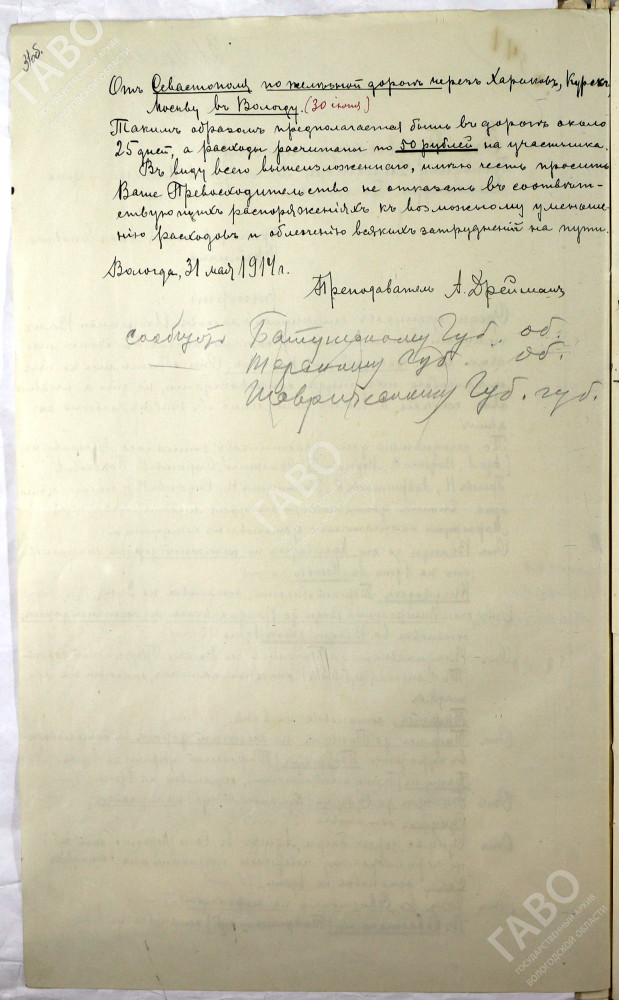 34об.
Отъ Севастополя по желѣзной дорогѣ черезъ Харьковъ, Курскъ,
Москву въ Вологду. (30 іюня)
Такимъ образомъ предполагается быть въ дорогѣ около
25 дней, а расходы расчитаны по 50 рублей на участника.
Въ виду всего вышеизложеннаго, имѣю честь просить
Ваше Превосходительство не отказать въ соотвѣт-
ствующихъ распоряженіяхъ къ возможному уменьше-
нію расходовъ и облегченію всякихъ затрудненій на пути.
Вологда, 31 мая 1914 г.
Преподаватель А. Дрейманъ
Батумскому Губ. об.
Терскому Губ. об.
Таврическому Губ. губ.
ГАВО
ГОСУДАРСТВЕННЫЙ АРХИВ
ВОЛОГОДСКОЙ ОБЛАСТИ